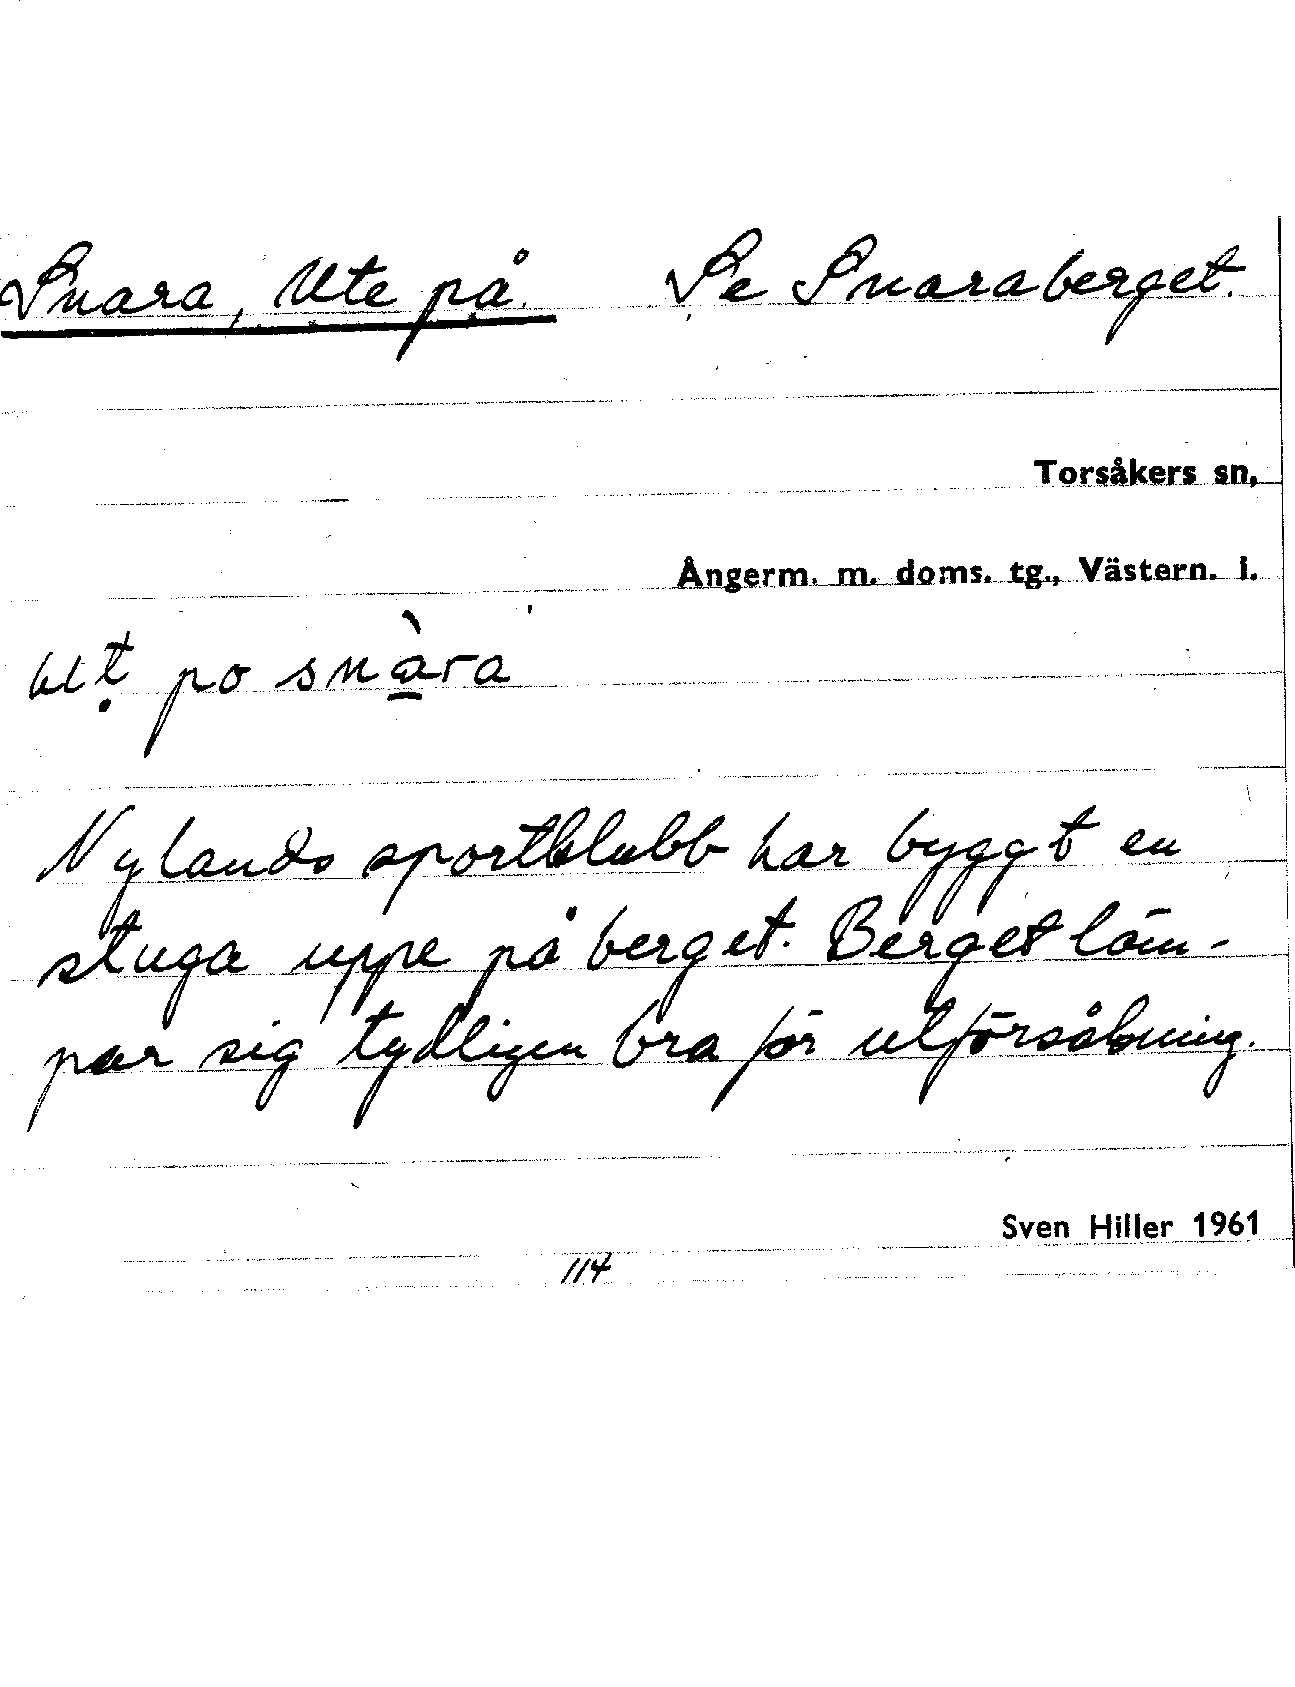 Snara, Ute på. Se Snaraberget.
Torsåkers sn,
Ångerm. m. doms. tg., Västern. l.
ut̤ po snàra
Nylands sportklubb har byggt en
stuga uppe på berget. Berget läm-
par sig tydligen bra för utförsåkning.
Sven Hiller 1961
114